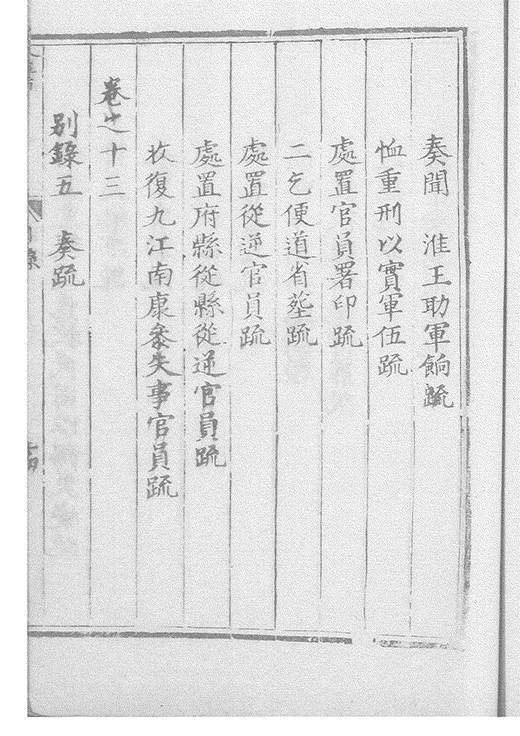 奏聞　淮王助軍餉疏
恤重刑以實軍伍疏
處置官員署印疏
二乞便道省塟疏
處置從逆官員疏
處置府縣從縣從逆官員疏
收復九江南康叅失事官員疏
卷之十三
別錄五　奏疏